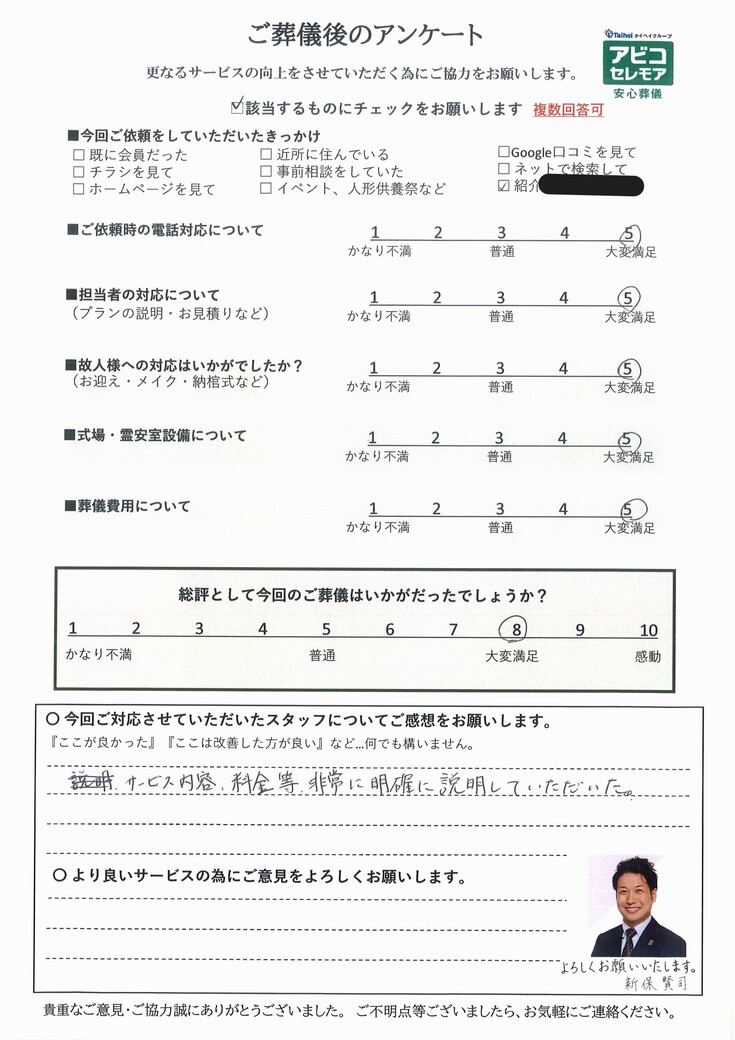 ご葬儀後のアンケート
Taihei タイヘイグループ
アビコ
セレモア
安心葬儀
更なるサービスの向上をさせていただく為にご協力をお願いします。
☑該当するものにチェックをお願いします 複数回答可
■今回ご依頼をしていただいたきっかけ
☐ 既に会員だった ☐ 近所に住んでいる ☐Google口コミを見て
☐ チラシを見て ☐ 事前相談をしていた ☐ ネットで検索して
☐ ホームページを見て ☐ イベント、人形供養祭など ☑ 紹介
■ご依頼時の電話対応について 1 2 3 4 5
かなり不満 普通 大変満足
■担当者の対応について 1 2 3 4 5
（プランの説明・お見積りなど） かなり不満 普通 大変満足
■故人様への対応はいかがでしたか？ 1 2 3 4 5
（お迎え・メイク・納棺式など） かなり不満 普通 大変満足
■式場・霊安室設備について 1 2 3 4 5
かなり不満 普通 大変満足
■葬儀費用について 1 2 3 4 5
かなり不満 普通 大変満足
総評として今回のご葬儀はいかがだったでしょうか？
1 2 3 4 5 6 7 8 9 10
かなり不満 普通 大変満足 感動
〇 今回ご対応させていただいたスタッフについてご感想をお願いします。
『ここが良かった』『ここは改善した方が良い』など…何でも構いません。
サービス内容、料金等、非常に明確に説明していただいた。
〇 より良いサービスの為にご意見をよろしくお願いします。
よろしくお願いいたします。
新保賢司
貴重なご意見・ご協力誠にありがとうございました。 ご不明点等ございましたら、お気軽にご連絡ください。